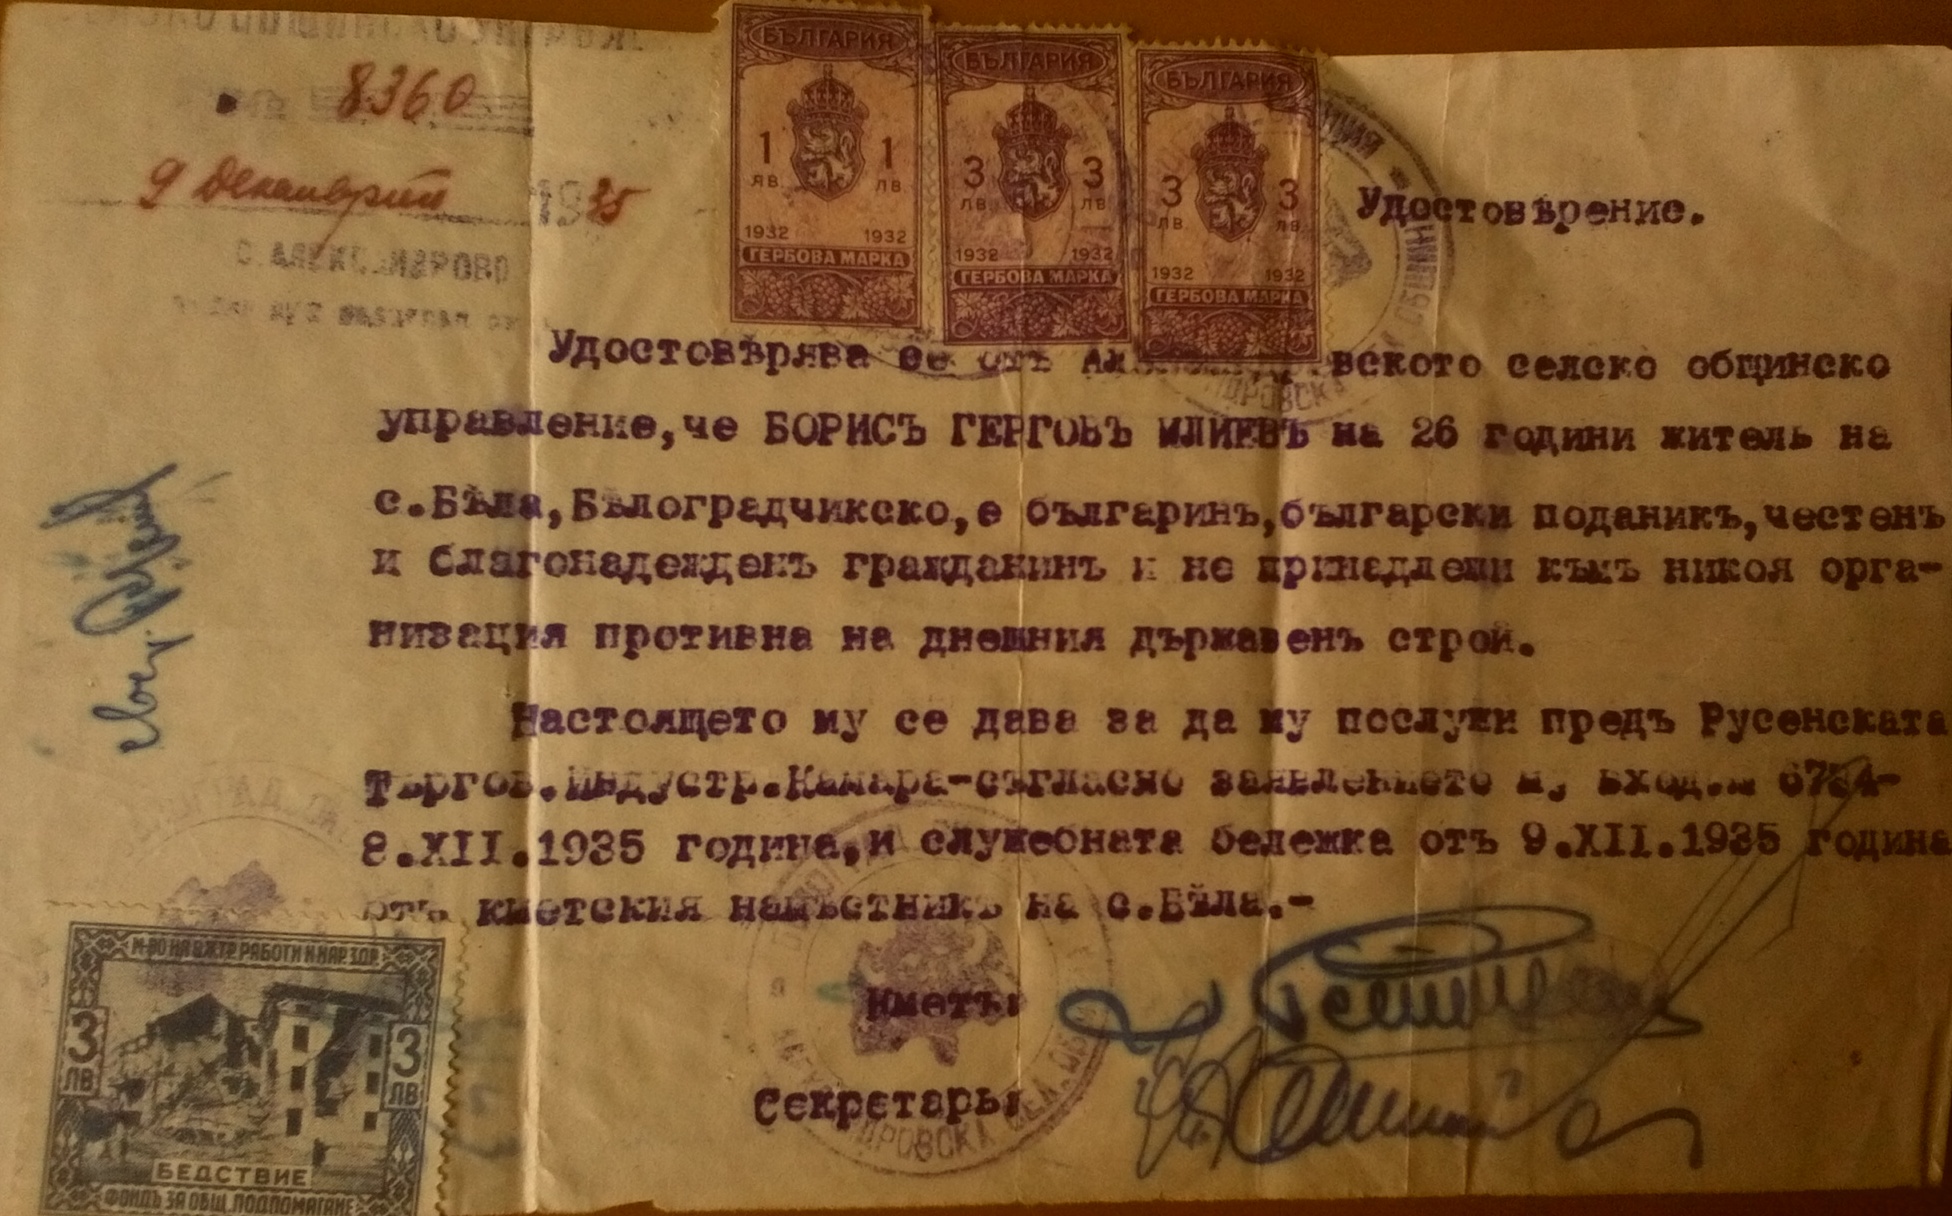 8360
9 Декемврий 1935
С. АЛЕКСАНДРОВО
БЪЛГАРИЯ
1 1
ЛВ. ЛВ.
1932 1932
ГЕРБОВА МАРКА
БЪЛГАРИЯ
3 3
ЛВ. ЛВ.
1932 1932
ГЕРБОВА МАРКА
БЪЛГАРИЯ
3 3
ЛВ. ЛВ.
1932 1932
ГЕРБОВА МАРКА
Удостовѣрение.
Удостовѣрява се отъ Александровското селско общинско
управление,че БОРИСЪ ГЕРГОВЪ ИЛИЕВЪ на 26 години житель на
с.Бѣла,Бѣлоградчикско,е българинъ,български поданикъ,честенъ
и благонадежденъ гражданинъ и не принадлежи къмъ никоя орга-
низация противна на днешния държавенъ строй.
Настоящето му се дава за да му послужи предъ Русенската
Търгов.Индустр.Камара-съгласно заявлението му вход.№
8.XII.1935 година,и служебната бележка отъ 9.XII.1935 година
отъ кметския намѣстникъ на с.Бѣла.-
Кметъ:
Секретарь:
М-ВО НА ВѪТР. РАБОТИ И НАР. ЗДР.
3 3
ЛВ ЛВ
БЕДСТВИЕ
ФОНДЪ ЗА ОБЩ. ПОДПОМАГАНЕ